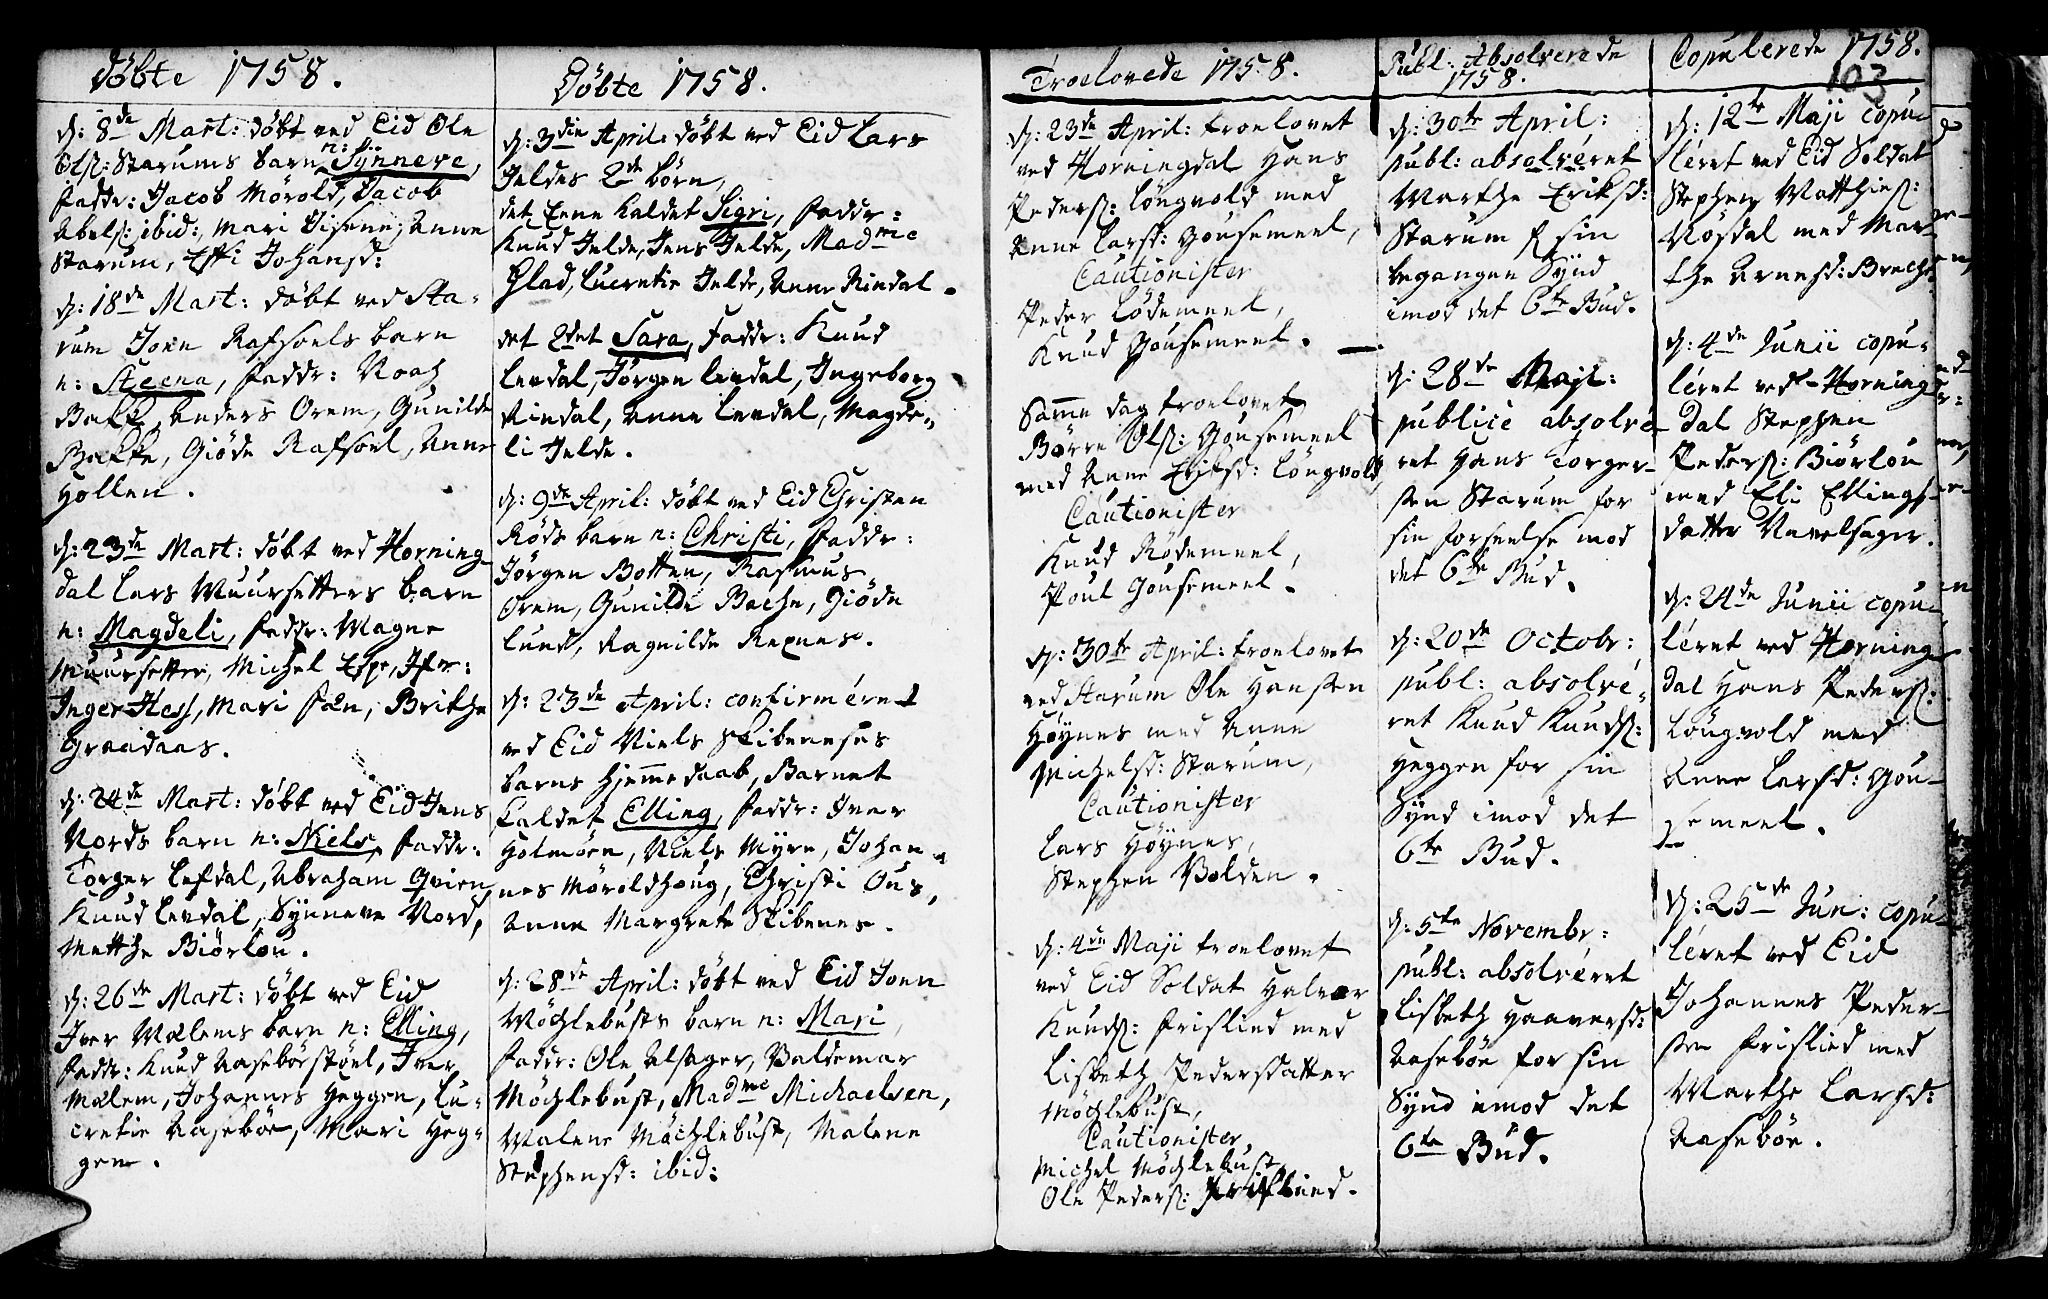 Döbte 1758.
d: 8de Mart: döbt ved Eid Ole
Ols: Starums barn n: Synneve,
Faddr: Jacob Mörold, Jacob
Abels: ibid:, Mari Anne
Starum, Effi Johansd:
d: 18de Mart: döbt ved Sta-
rum Joen Rafsoels barn
n: Steena, Faddr: Noach
Bakke, Anders Orem, Gunilde
Bakke, Giöde Rafsoel, Anne
Hollen.
d: 23de Mart: döbt ved Horning
dal Lars Muursetters barn
n: Magdeli, Faddr: Magne
Muursetter, Michel Espe, Jfr:
Inger Hess, Mari Brithe
Graadaas.
d: 24de Mart: döbt ved Eid Jens
Nords barn n: Niels, Faddr:
Torger Lefdal, Abraham Qvien,
Knud Levdal, Synneve Nord,
Mætthe Biörlou.
d: 26de Mart: döbt ved Eid
Iver Mælems barn n: Elling,
Faddr: Knud Aaseböestöel, Iver
Mælem, Johannes Heggen, Lu-
cretie Aaseböe, Mari Heg-
gen.
Döbte 1758.
d: 3die April: döbt ved Eid Lars
Jeldes 2de börn,
det Eene kaldet Sigri, Faddr:
Knud Jelde, Jens Jelde, Madme
Glad, Lucretie Jelde, Anne Rindal.
det 2det Sara, Faddr: Knud
Levdal, Jörgen Levdal, Ingeborg
Rindal, Anne Levdal, Magde-
li Jelde.
d: 9de April: döbt ved Eid Christen
Röds barn n: Christi, Faddr:
Jörgen Botten, Rasmus
Orem, Gunilde Giöde
Lund, Ragnilde Repnes.
d: 23de April: confirméret
ved Eid Niels Skibeneses
barns Hjemmedaab, Barnet
kaldet Elling, Faddr: Iver
Holmöen, Niels Myre, Johan-
nes Möroldhoug, Christi Ous,
Anne Margrete Skibenes.
d: 28de April: döbt ved Eid Joen
Möchlebusts barn n: Mari,
Faddr: Ole Alsager, Valdemar
Möchlebust, Madme Michaelsen,
Malene Möchlebust, Malene
Stephensd: ibid:
Troelovede 1758.
d: 23de April: troelovet
ved Horningdal Hans
Peders: Löngvold med
Anne Larsd: Gousemeel,
Cautionister
Peder Lödemeel,
Knud Gousemeel.
Samme dag troelovet
Börre Ols: Gousemeel
med Anne Eriksd: Löngvold,
Cautionister
Knud Rödemeel,
Poul Gousemeel.
d: 30te April: troelovet
ved Starum Ole Hansen
Höynes med Anne
Michelsd: Starum,
Cautionister
Lars Höynes,
Stephen Volden.
d: 4de Maji troelovet
ved Eid Soldat Halvor
Knuds: Frislied med
Lisbeth Pedersdatter
Möchlebust,
Cautionister,
Michel Möchlebust,
Ole Peders: Frislied.
Publ: Absolverede
1758.
d: 30te April:
publ: absolvéret
Marthe Eriksd:
Starum f sin
begangen Synd
imod det 6te Bud.
d: 28de Maji:
publicè absolvé-
ret Hans Torger-
sen Starum for
sin Forseelse mod
det 6te Bud.
d: 20de Octobr:
publ: absolvé-
ret Knud Knuds:
Heggen for sin
Synd imod det
6te Bud.
d: 5te Novembr:
publ: absolvéret
Lisbeth Haaversd:
Aaseböe for sin
Synd imod det
6te Bud.
Copulerede 1758.
103
d: 12te Maji copu-
léret ved Eid Soldat
Stephen Matthies:
Nösdal med Mar-
the Arnesd: Breche
d: 4de Junii copu-
léret ved Horning-
dal Stephen
Peders: Biörlou
med Eli Ellings-
datter Navelsager.
d: 24de Junii copu-
léret ved Horning-
dal Hans Peders:
Löngvold med
Anne Larsd: Gou-
semeel.
d: 25de Jun: copu-
léret ved Eid
Johannes Peder-
sen Frislied med
Marthe Larsd:
Aaseböe.